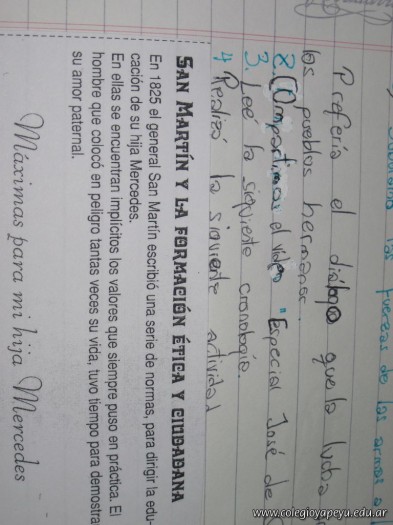 las fuerzas de las armas a
Prefería el diálogo que la lucha
los pueblos hermanos.
2. Compartimos el video "Especial José de
3. Leé la siguiente cronología.
4 Realizá la siguiente actividad
SAN MARTÍN Y LA FORMACIÓN ÉTICA Y CIUDADANA
En 1825 el general San Martín escribió una serie de normas, para dirigir la edu-
cación de su hija Mercedes.
En ellas se encuentran implícitos los valores que siempre puso en práctica. El
hombre que colocó en peligro tantas veces su vida, tuvo tiempo para demostra
su amor paternal.
Máximas para mi hija Mercedes
www.colegioyapeyu.edu.ar